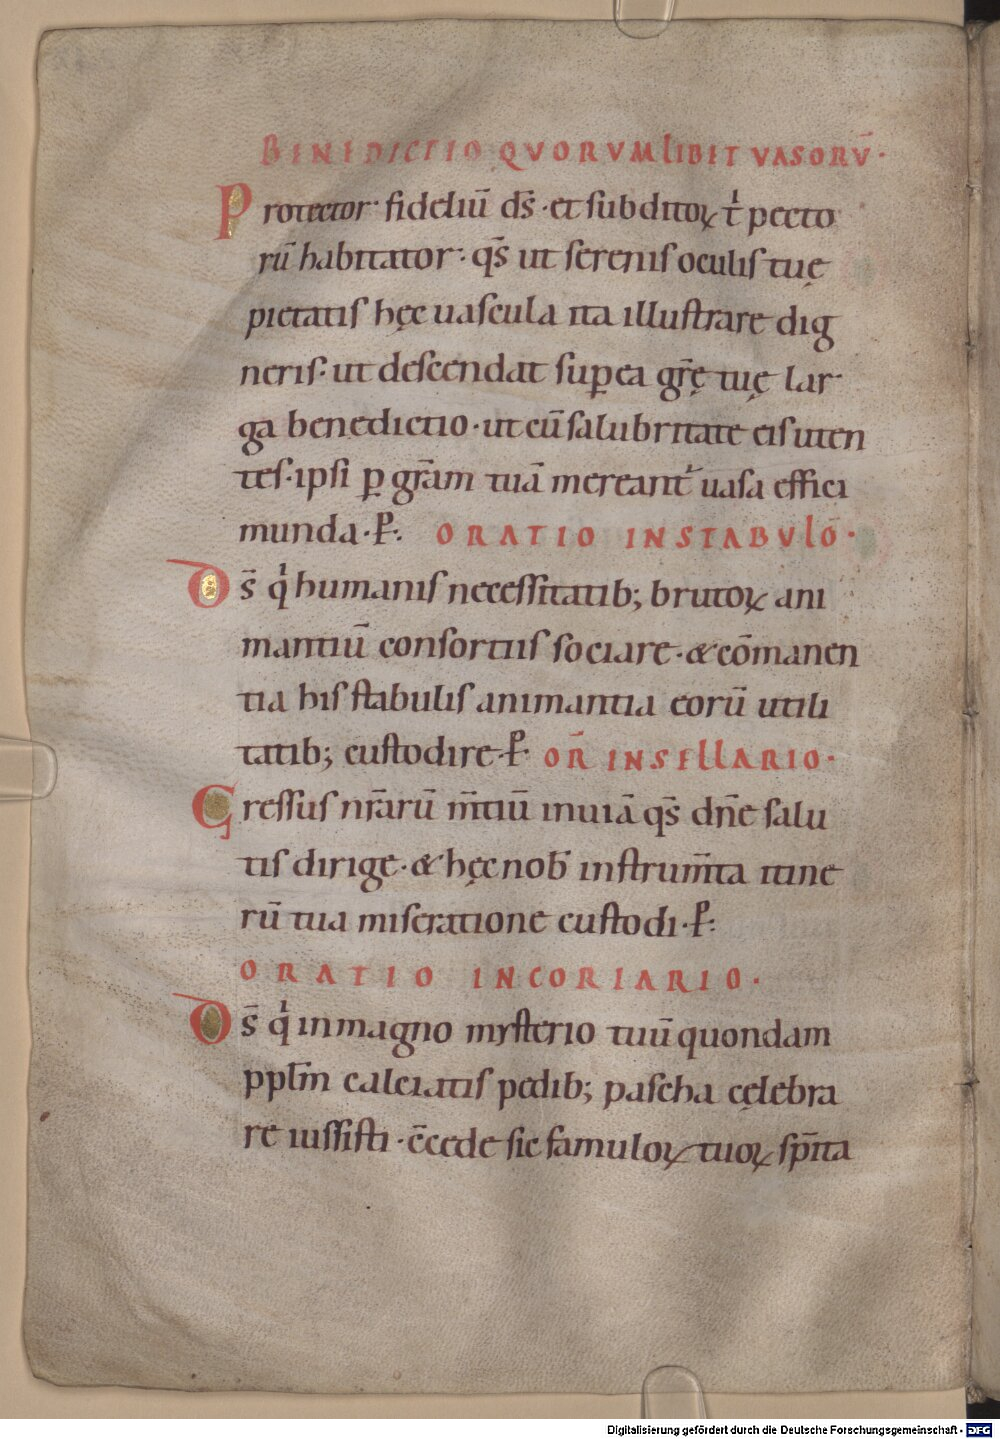 BENEDICTIO QVORVMLIBET VASORV̄·
Protector fideliū ds̄·et subditoꝝ t̄ pecto
rū habitator·qs̄ ut serenis oculis tuę
pietatis hęc uascula ita illustrare dig
neris·ut descendat sup ea gr̄ę tuę lar
ga benedictio·ut cū salubritate eis uten
tes·ipsi ꝑ gr̄am tuā mereant̄ uasa effici
munda·P̲·  ORATIO IN STABVLO·
Ds̄ qͥ humanis necessitatib; brutoꝝ ani
mantiū consortiis sociare·&cōmanen
tia his stabulis animantia eorū utili
tatib; custodire·P· OR̄ IN SELLARIO·
Gressus nr̄arū m̄tiū in uiā qs̄ dn̄e salu
tis dirige·& hęc nob̄ instrum̄ta itine
rū tua miseratione custodi·P·
ORATIO IN CORIARIO·
Ds̄ qͥ in magno mysterio tuū quondam
pplm̄ calciatis pedib; pascha cęlebra
re iussisti·c̄cede sic famuloꝝ tuoꝝ sp̄ita
Digitalisierung gefördert durch die Deutsche Forschungsgemeinschaft - DFG